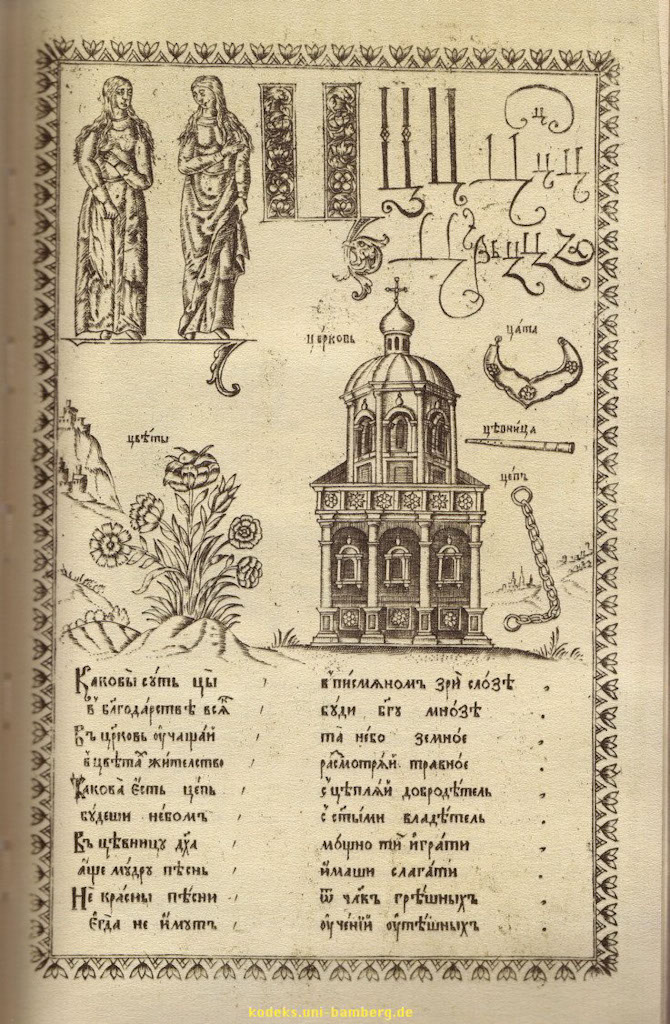 Ц
Ц Ц Ц Ц Ц Ц Ц
Ц АБЦЦЦ
церковь
цата
цвѣты
цѣвница
цепь
Каковы суть цы в писмяномъ зри слозѣ
в благодарствѣ всѧ буди бг҃у мнозѣ
Въ цр҃ковь оучащай та небо земное
в цвѣта жителство расмотряй травное
Какова есть цепь сцепляй добродѣтель
будеши небомъ с ст҃ыми владѣтель
Въ цѣвницу дх҃а мощно ти играти
аще мудру пѣснь имаши слагати
Не красны пѣсни ѿ чл҃вкъ грѣшныхъ
Егда не имутъ оученій оутѣшныхъ
kodeks.uni-bamberg.de